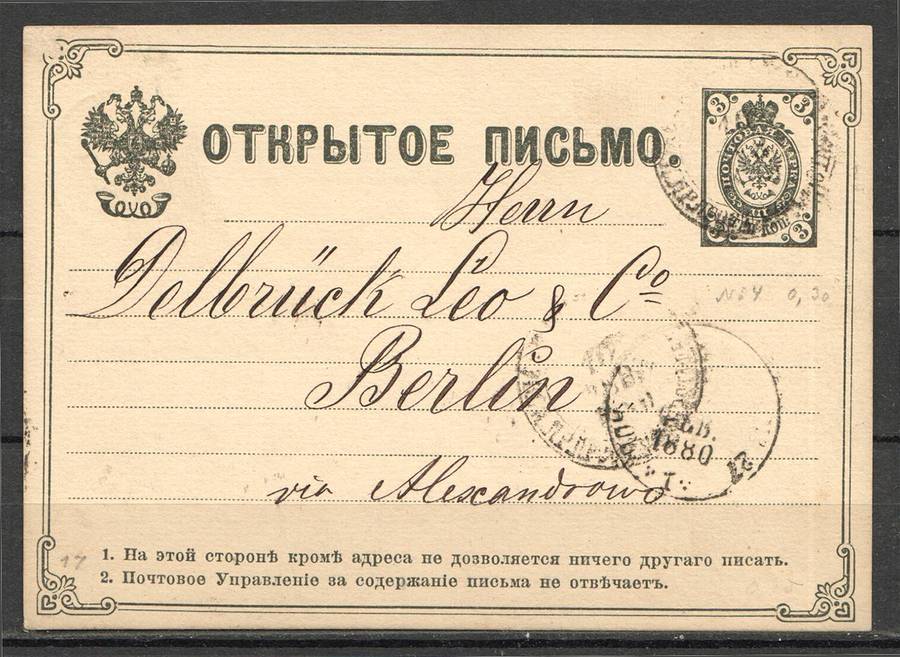 ОТКРЫТОЕ ПИСЬМО.
3 3
ПОЧТОВАЯ МАРКА
3 КОП. 3
Herrn
Delbrück Leo & Co
№ 54 0,30
Berlin
ФЕВ.
1880
via Alexandrowo
17
1. На этой сторонѣ кромѣ адреса не дозволяется ничего другаго писать.
2. Почтовое Управленіе за содержаніе письма не отвѣчаетъ.